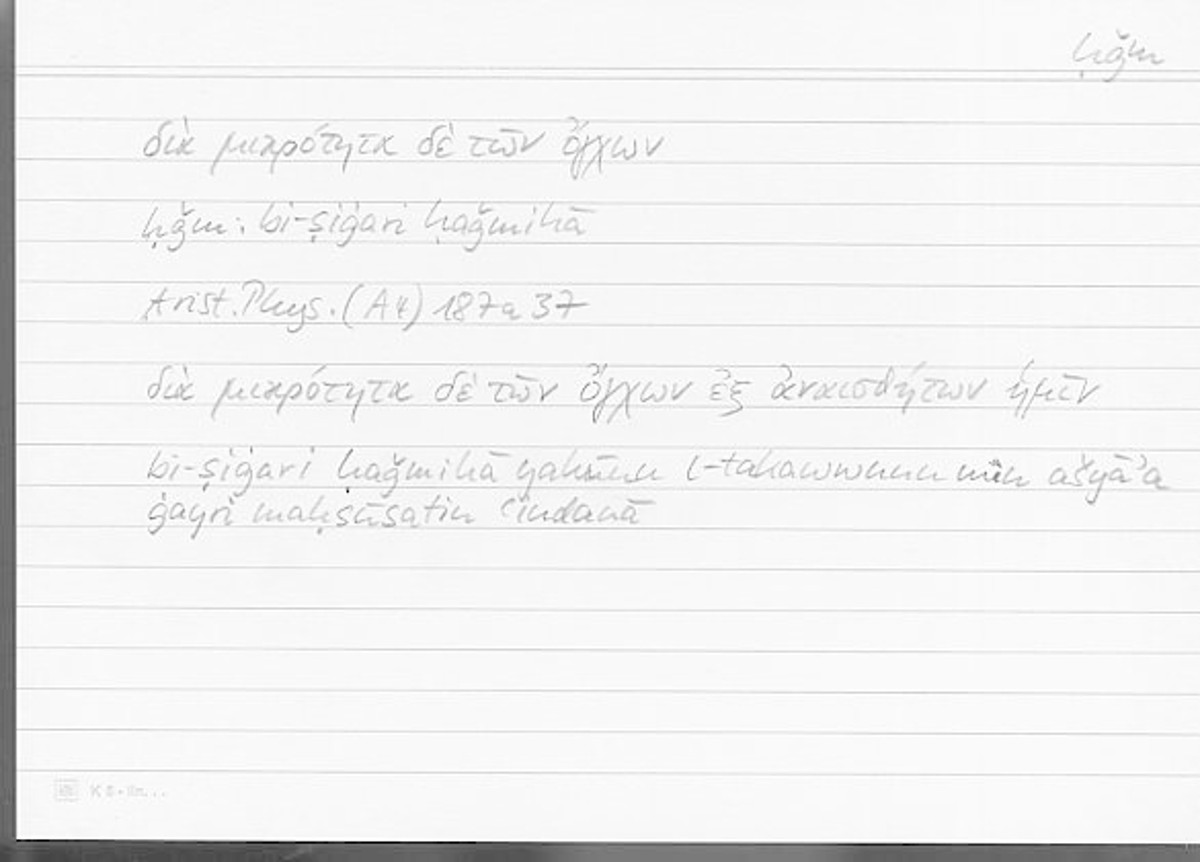 ḥǧm
διὰ μικρότητα δὲ τῶν ὄγχων
ḥǧm: bi-ṣiġari ḥaǧmihā
Arist. Phys. (A4) 187a 37
διὰ μικρότητα δὲ τῶν ὄγχων ἐξ ἀναισθήτων ἡμῖν
bi-ṣiġari ḥaǧmihā yakūnu l-takawwunu min ašyāʾa
ġayri maḥsūsatin ʿindanā